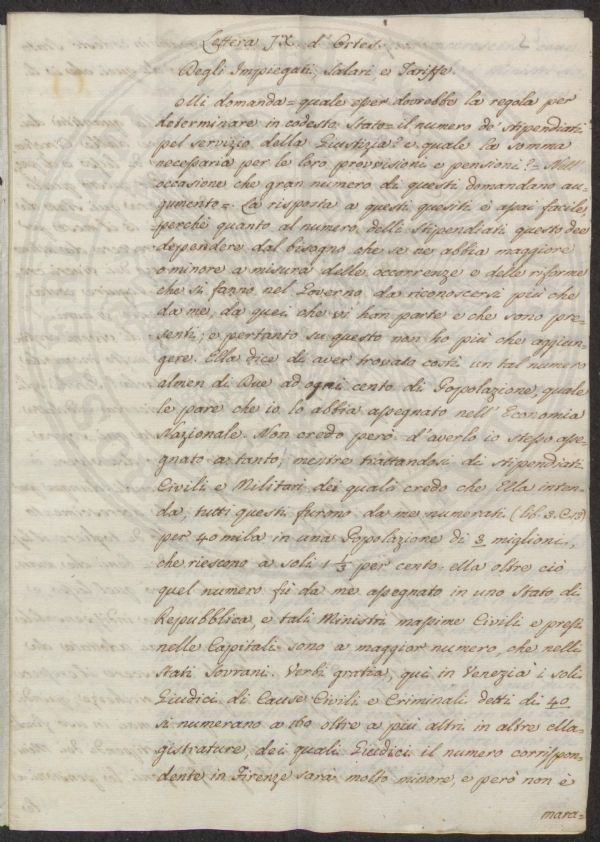 Lettera IX. d'Ortes.
2
Degli Impiegati, Salari e Tariffe.
Mi domanda= quale esser dovrebbe la regola per
determinare in codesto Stato= il numero de' stipendiati
pel servizio della Giustizia? e quale la somma
necessaria per le loro provvisioni e pensioni?= Nell'
occasione che gran numero di questi domandano au-
gumento= La risposta a questi quesiti è assai facile,
perchè quanto al numero delli stipendiati questo dee
dependere dal bisogno che se ne abbia maggiore
o minore a misura delle occorrenze e delle riforme
che si fanno nel Governo, da riconoscersi più che
da me, da quei che vi han parte e che sono pre-
senti; e pertanto su questo non ho più che aggiun-
gere. Ella dice di aver trovato costì un tal numero
almen di Due ad ogni cento di Popolazione, quale
le pare che io lo abbia assegnato nell'Economia
Nazionale. Non credo però d'averlo io stesso asse-
gnato a tanto, mentre trattandosi di stipendiati
Civili e Militari, dei quali credo che Ella inten-
da, tutti questi furono da me numerati (lib. 3. C. 13)
per 40 mila in una Popolazione di 3 miglioni,
che riescono a soli 1 1/3 per cento; ma oltre ciò
quel numero fù da me assegnato in uno Stato di
Repubblica, e tali Ministri massime Civili e presi
nelle Capitali sono a maggior numero, che nelli
Stati Sovrani. Verbi gratia, qui in Venezia i soli
Giudici di Cause Civili e Criminali detti di 40
si numerano a 160 oltre a più altri in altre Ma-
gistrature, dei quali Giudici il numero corrispon-
dente in Firenze sarà molto minore, e però non è
mara=